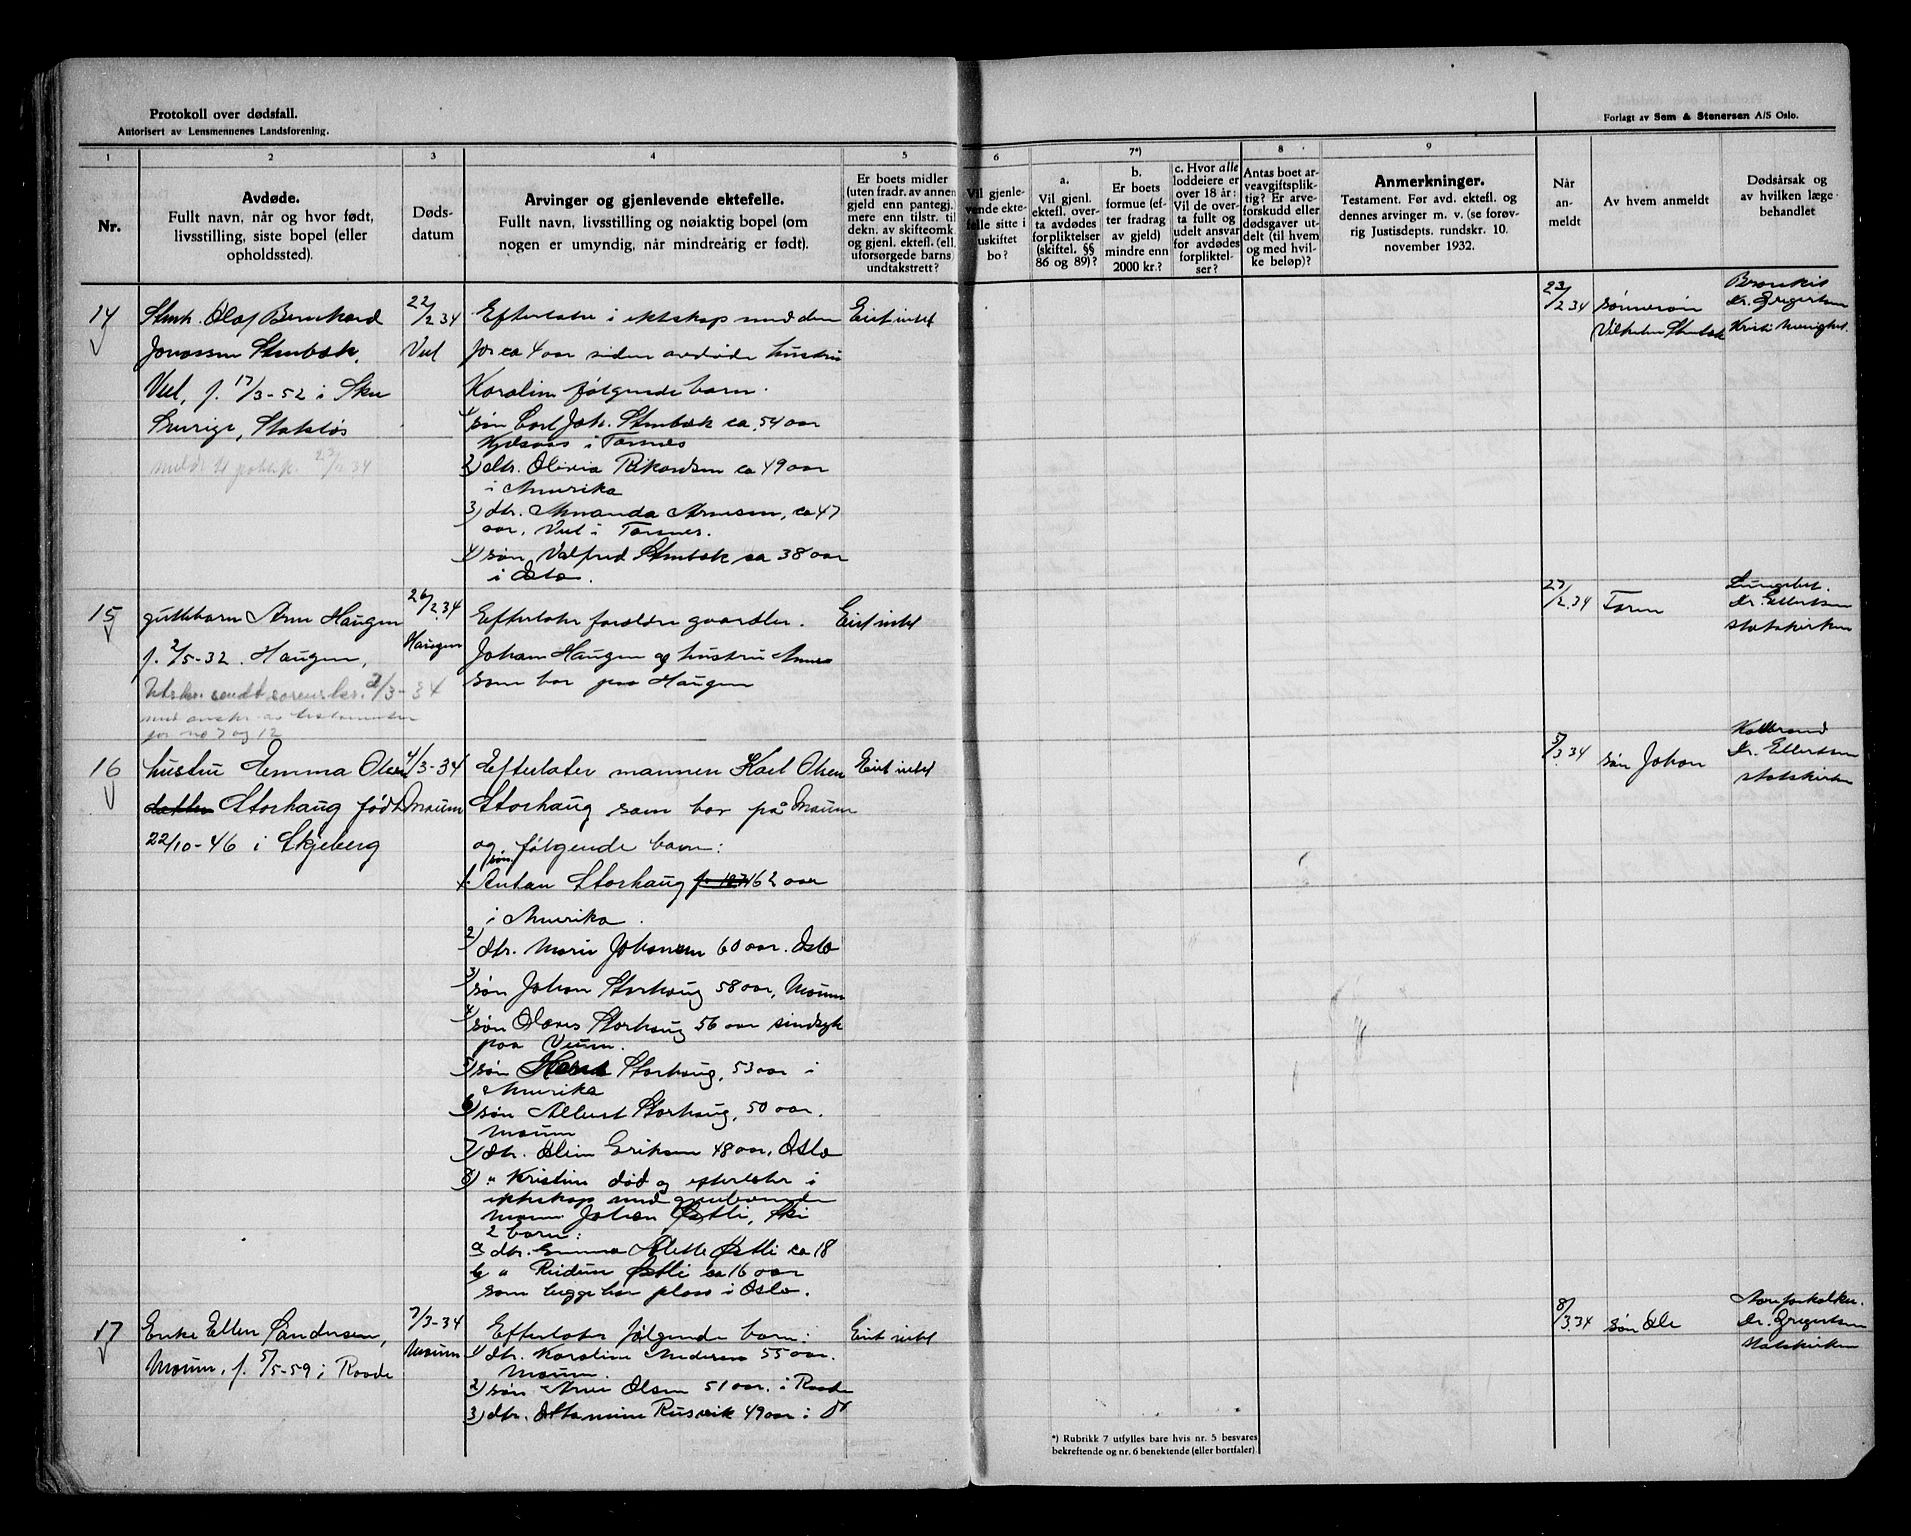 Protokoll over dødsfall.
Autorisert av Lensmennenes Landsforening.
Forlagt av Sem & Stenersen A/S Oslo.
1 2 3 4 5 6 7*) 8 9
Nr.
Avdøde.
Fullt navn, når og hvor født,
livsstilling, siste bopel (eller
opholdssted).
Døds-
datum
Arvinger og gjenlevende ektefelle.
Fullt navn, livsstilling og nøiaktig bopel (om
nogen er umyndig, når mindreårig er født).
Er boets midler
(uten fradr. av annen
gjeld enn pantegj,
mere enn tilstr. til
dekn. av skifteomk.
og gjenl. ektef. (ell.
uforsørgede barns)
undtakstrett?
Vil gjenle-
vende ekte-
felle sitte i
uskiftet
bo?
a.
Vil gjenl.
ektefl. over-
ta avdødes
forpliktelser
(skiftel. §§
86 og 89)?
b.
Er boets
formue (ef-
ter fradrag
av gjeld)
mindre enn
2000 kr.?
c. Hvor alle
loddeiere er
over 18 år:
Vil de over-
ta fullt og
udelt ansvar
for avdødes
forpliktel-
ser?
Antas boet ar-
veavgiftsplik-
tig? Er arve-
forskudd eller
dødsgaver ut-
delt (til hvem
og med hvil-
ke beløp)?
Anmerkninger.
Testament. Før avd. ektefl. og
dennes arvinger m. v. (se forøv-
rig Justisdepts. rundskr. 10.
november 1932.
Når
an-
meldt
Av hvem anmeldt
Dødsårsak og
av hvilken læge
behandlet
14
Stenh. Olaf Bernhard
Jonassen Stenbæk,
Vul, f. 17/3-52 i Ske
Sverige, Statsløs
meldt til politik. 23/2 34
22/2 34
Vul
Efterlater i ektskap med den
for ca 4 aar siden avdøde hustru
Karoline følgende barn.
1) søn Carl Joh. Stenbæk ca. 54 aar
i Torsnes
2) dtr. Olivia Rikardsen ca 49 aar
i Amerika
3) dtr. Amanda Arnesen, ca 47
aar, Vul i Torsnes.
4) søn, Valfred Stenbæk ca 38 aar
i Oslo.
Eiet intet
23/2 34
sønnesøn
Vilhelm Stenbæk
Bronkit
dr. Gregertsen
Krist. menighet.
15
guttebarn Arne Haugen
f. 2/5-32. Haugen,
Utskr. sendt sorenskr. 2/3-34
med avskr. av testamenter
for no 7 og 12
26/2.34
Haugen
Efterlater foreldre gaardbr.
Johan Haugen og hustru Anna
som bor paa Haugen
Eiet intet
27/2.34
Faren
Lungebet.
Dr. Ellertsen
statskirken
16
hustru Emma Olsen
Storhaug født
22/10-46 i Skjeberg
4/3-34
Moum
Efterlater mannen Karl Olsen
Storhaug som bor på Moum
og følgende barn:
1. søn Antan Storhaug 62 aar
i Amerika.
2) dtr. Marie Johansen 60 aar. Oslo
3) søn Johan Storhaug 58 aar, Moum
4) søn Olaves Storhaug 56 aar sindsyk
paa Veum.
5) søn Hans Storhaug, 53 aar i
Amerika
6) søn Albert Storhaug, 50 aar.
Moum
7) dtr. Oline Eriksen 48 aar, Oslo
8) " Kristine død og efterlater i
ektskap med gjenlevende
mann Johan Østli, Ski
2 barn:
a dtr. Emma Alette Østli ca 18
b " Reidun Østli ca 16 aar
som begge har plass i Oslo.
Eiet intet
5/3.34
søn Johan
Koldbrand
Dr. Ellertsen
statskirken
17
Enke Ellen Sandersen,
Moum, f. 5/5-59 i Raade
7/3-34
Moum
Efterlater følgende barn:
1) dtr. Karoline Andersen 55 aar.
Moum.
2) søn Arne Olsen 51 aar. i Raade
3) dtr. Ottomine Rusvik 49 aar i do
Eiet intet
8/3.34
søn Ole
Aareforkalkn.
Dr. Gregertsen
statskirken
*) Rubrikk 7 utfylles bare hvis nr. 5 besvares
bekreftende og nr. 6 benektende (eller bortfaller)